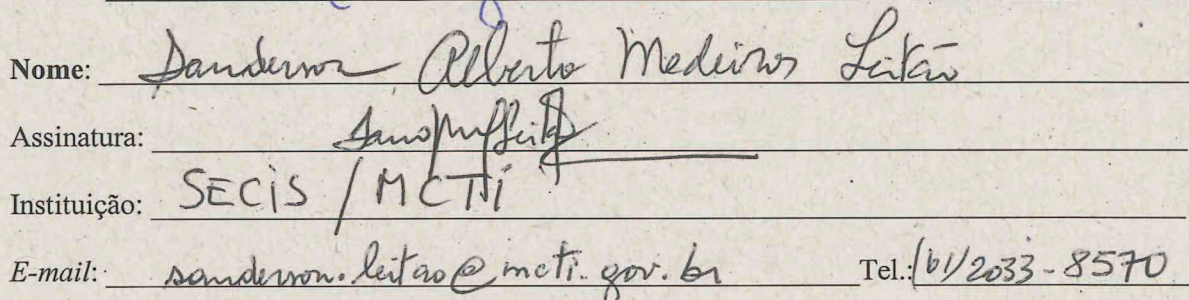 Nome: Sanderson Alberto Medeiros Leitão
Assinatura:
Instituição: SECIS / MCTI
E-mail: sanderson.leitao@mcti.gov.br Tel.: (61) 2033-8570